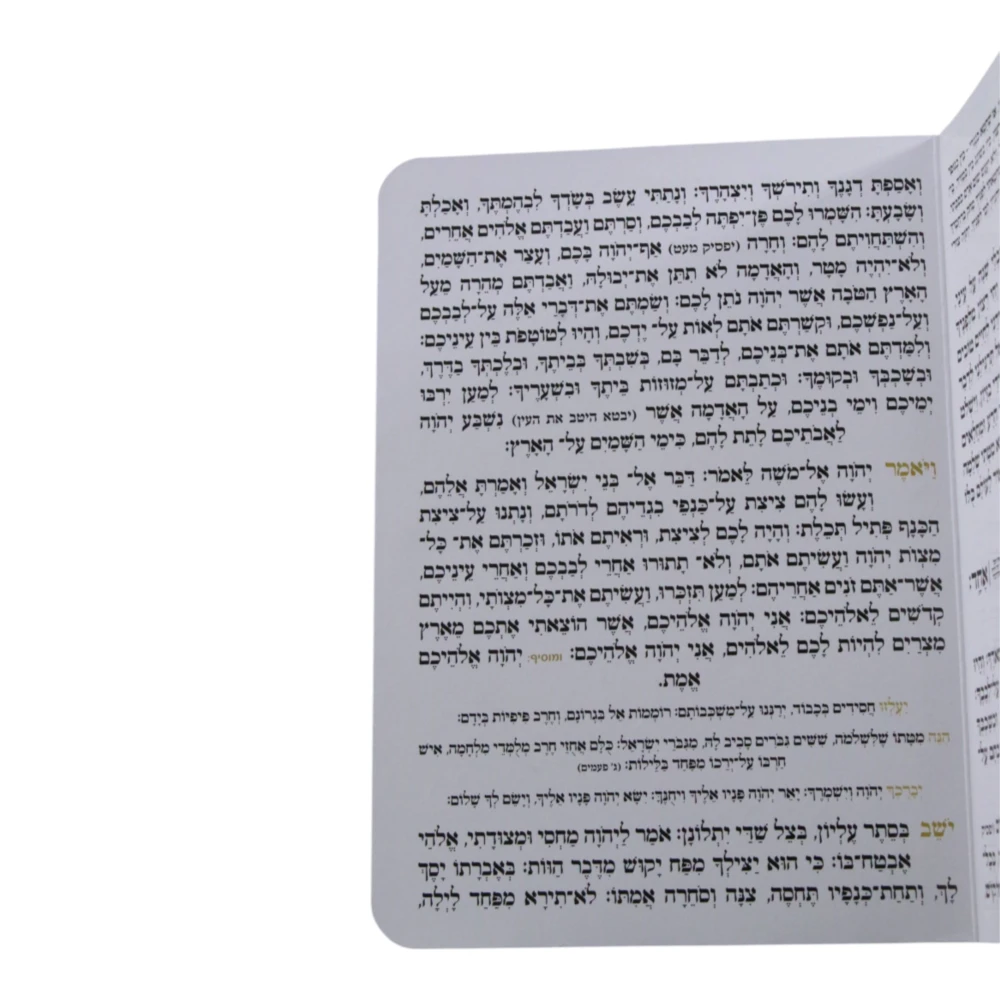 וְאָסַפְתָּ דְגָנֶךָ וְתִירֹשְׁךָ וְיִצְהָרֶךָ: וְנָתַתִּי עֵשֶׂב בְּשָׂדְךָ לִבְהֶמְתֶּךָ, וְאָכַלְתָּ
וְשָׂבָעְתָּ: הִשָּׁמְרוּ לָכֶם פֶּן־יִפְתֶּה לְבַבְכֶם, וְסַרְתֶּם וַעֲבַדְתֶּם אֱלֹהִים אֲחֵרִים,
וְהִשְׁתַּחֲוִיתֶם לָהֶם: וְחָרָה (יפסיק מעט) אַף־יְהֹוָה בָּכֶם, וְעָצַר אֶת־הַשָּׁמַיִם,
וְלֹא־יִהְיֶה מָטָר, וְהָאֲדָמָה לֹא תִתֵּן אֶת־יְבוּלָהּ, וַאֲבַדְתֶּם מְהֵרָה מֵעַל
הָאָרֶץ הַטֹּבָה אֲשֶׁר יְהֹוָה נֹתֵן לָכֶם: וְשַׂמְתֶּם אֶת־דְּבָרַי אֵלֶּה עַל־לְבַבְכֶם
וְעַל־נַפְשְׁכֶם, וּקְשַׁרְתֶּם אֹתָם לְאוֹת עַל־ יֶדְכֶם, וְהָיוּ לְטוֹטָפֹת בֵּין עֵינֵיכֶם:
וְלִמַּדְתֶּם אֹתָם אֶת־בְּנֵיכֶם, לְדַבֵּר בָּם, בְּשִׁבְתְּךָ בְּבֵיתֶךָ, וּבְלֶכְתְּךָ בַדֶּרֶךְ,
וּבְשָׁכְבְּךָ וּבְקוּמֶךָ: וּכְתַבְתָּם עַל־מְזוּזוֹת בֵּיתֶךָ וּבִשְׁעָרֶיךָ: לְמַעַן יִרְבּוּ
יְמֵיכֶם וִימֵי בְנֵיכֶם, עַל הָאֲדָמָה אֲשֶׁר (יבטא היטב את העין) נִשְׁבַּע יְהֹוָה
לַאֲבֹתֵיכֶם לָתֵת לָהֶם, כִּימֵי הַשָּׁמַיִם עַל־ הָאָרֶץ:
וַיֹּאמֶר יְהֹוָה אֶל־מֹשֶׁה לֵּאמֹר: דַּבֵּר אֶל־ בְּנֵי יִשְׂרָאֵל וְאָמַרְתָּ אֲלֵהֶם,
וְעָשׂוּ לָהֶם צִיצִת עַל־כַּנְפֵי בִגְדֵיהֶם לְדֹרֹתָם, וְנָתְנוּ עַל־צִיצִת
הַכָּנָף פְּתִיל תְּכֵלֶת: וְהָיָה לָכֶם לְצִיצִת, וּרְאִיתֶם אֹתוֹ, וּזְכַרְתֶּם אֶת־ כָּל־
מִצְוֹת יְהֹוָה וַעֲשִׂיתֶם אֹתָם, וְלֹא־ תָתוּרוּ אַחֲרֵי לְבַבְכֶם וְאַחֲרֵי עֵינֵיכֶם,
אֲשֶׁר־אַתֶּם זֹנִים אַחֲרֵיהֶם: לְמַעַן תִּזְכְּרוּ, וַעֲשִׂיתֶם אֶת־כָּל־מִצְוֹתָי, וִהְיִיתֶם
קְדֹשִׁים לֵאלֹהֵיכֶם: אֲנִי יְהֹוָה אֱלֹהֵיכֶם, אֲשֶׁר הוֹצֵאתִי אֶתְכֶם מֵאֶרֶץ
מִצְרַיִם לִהְיוֹת לָכֶם לֵאלֹהִים, אֲנִי יְהֹוָה אֱלֹהֵיכֶם: ומוסיף: יְהֹוָה אֱלֹהֵיכֶם
אֱמֶת.
יַעְלְזוּ חֲסִידִים בְּכָבוֹד, יְרַנְּנוּ עַל־מִשְׁכְּבוֹתָם: רוֹמְמוֹת אֵל בִּגְרוֹנָם, וְחֶרֶב פִּיפִיּוֹת בְּיָדָם:
הִנֵּה מִטָּתוֹ שֶׁלִּשְׁלֹמֹה, שִׁשִּׁים גִּבֹּרִים סָבִיב לָהּ, מִגִּבֹּרֵי יִשְׂרָאֵל: כֻּלָּם אֲחֻזֵי חֶרֶב מְלֻמְּדֵי מִלְחָמָה, אִישׁ
חַרְבּוֹ עַל־יְרֵכוֹ מִפַּחַד בַּלֵּילוֹת: (ג' פעמים)
יְבָרֶכְךָ יְהֹוָה וְיִשְׁמְרֶךָ: יָאֵר יְהֹוָה פָּנָיו אֵלֶיךָ וִיחֻנֶּךָּ: יִשָּׂא יְהֹוָה פָּנָיו אֵלֶיךָ, וְיָשֵׂם לְךָ שָׁלוֹם:
יֹשֵׁב בְּסֵתֶר עֶלְיוֹן, בְּצֵל שַׁדַּי יִתְלוֹנָן: אֹמַר לַיהֹוָה מַחְסִי וּמְצוּדָתִי, אֱלֹהַי
אֶבְטַח־בּוֹ: כִּי הוּא יַצִּילְךָ מִפַּח יָקוּשׁ מִדֶּבֶר הַוּוֹת: בְּאֶבְרָתוֹ יָסֶךְ
לָךְ, וְתַחַת־כְּנָפָיו תֶּחְסֶה, צִנָּה וְסֹחֵרָה אֲמִתּוֹ: לֹא־תִירָא מִפַּחַד לָיְלָה,